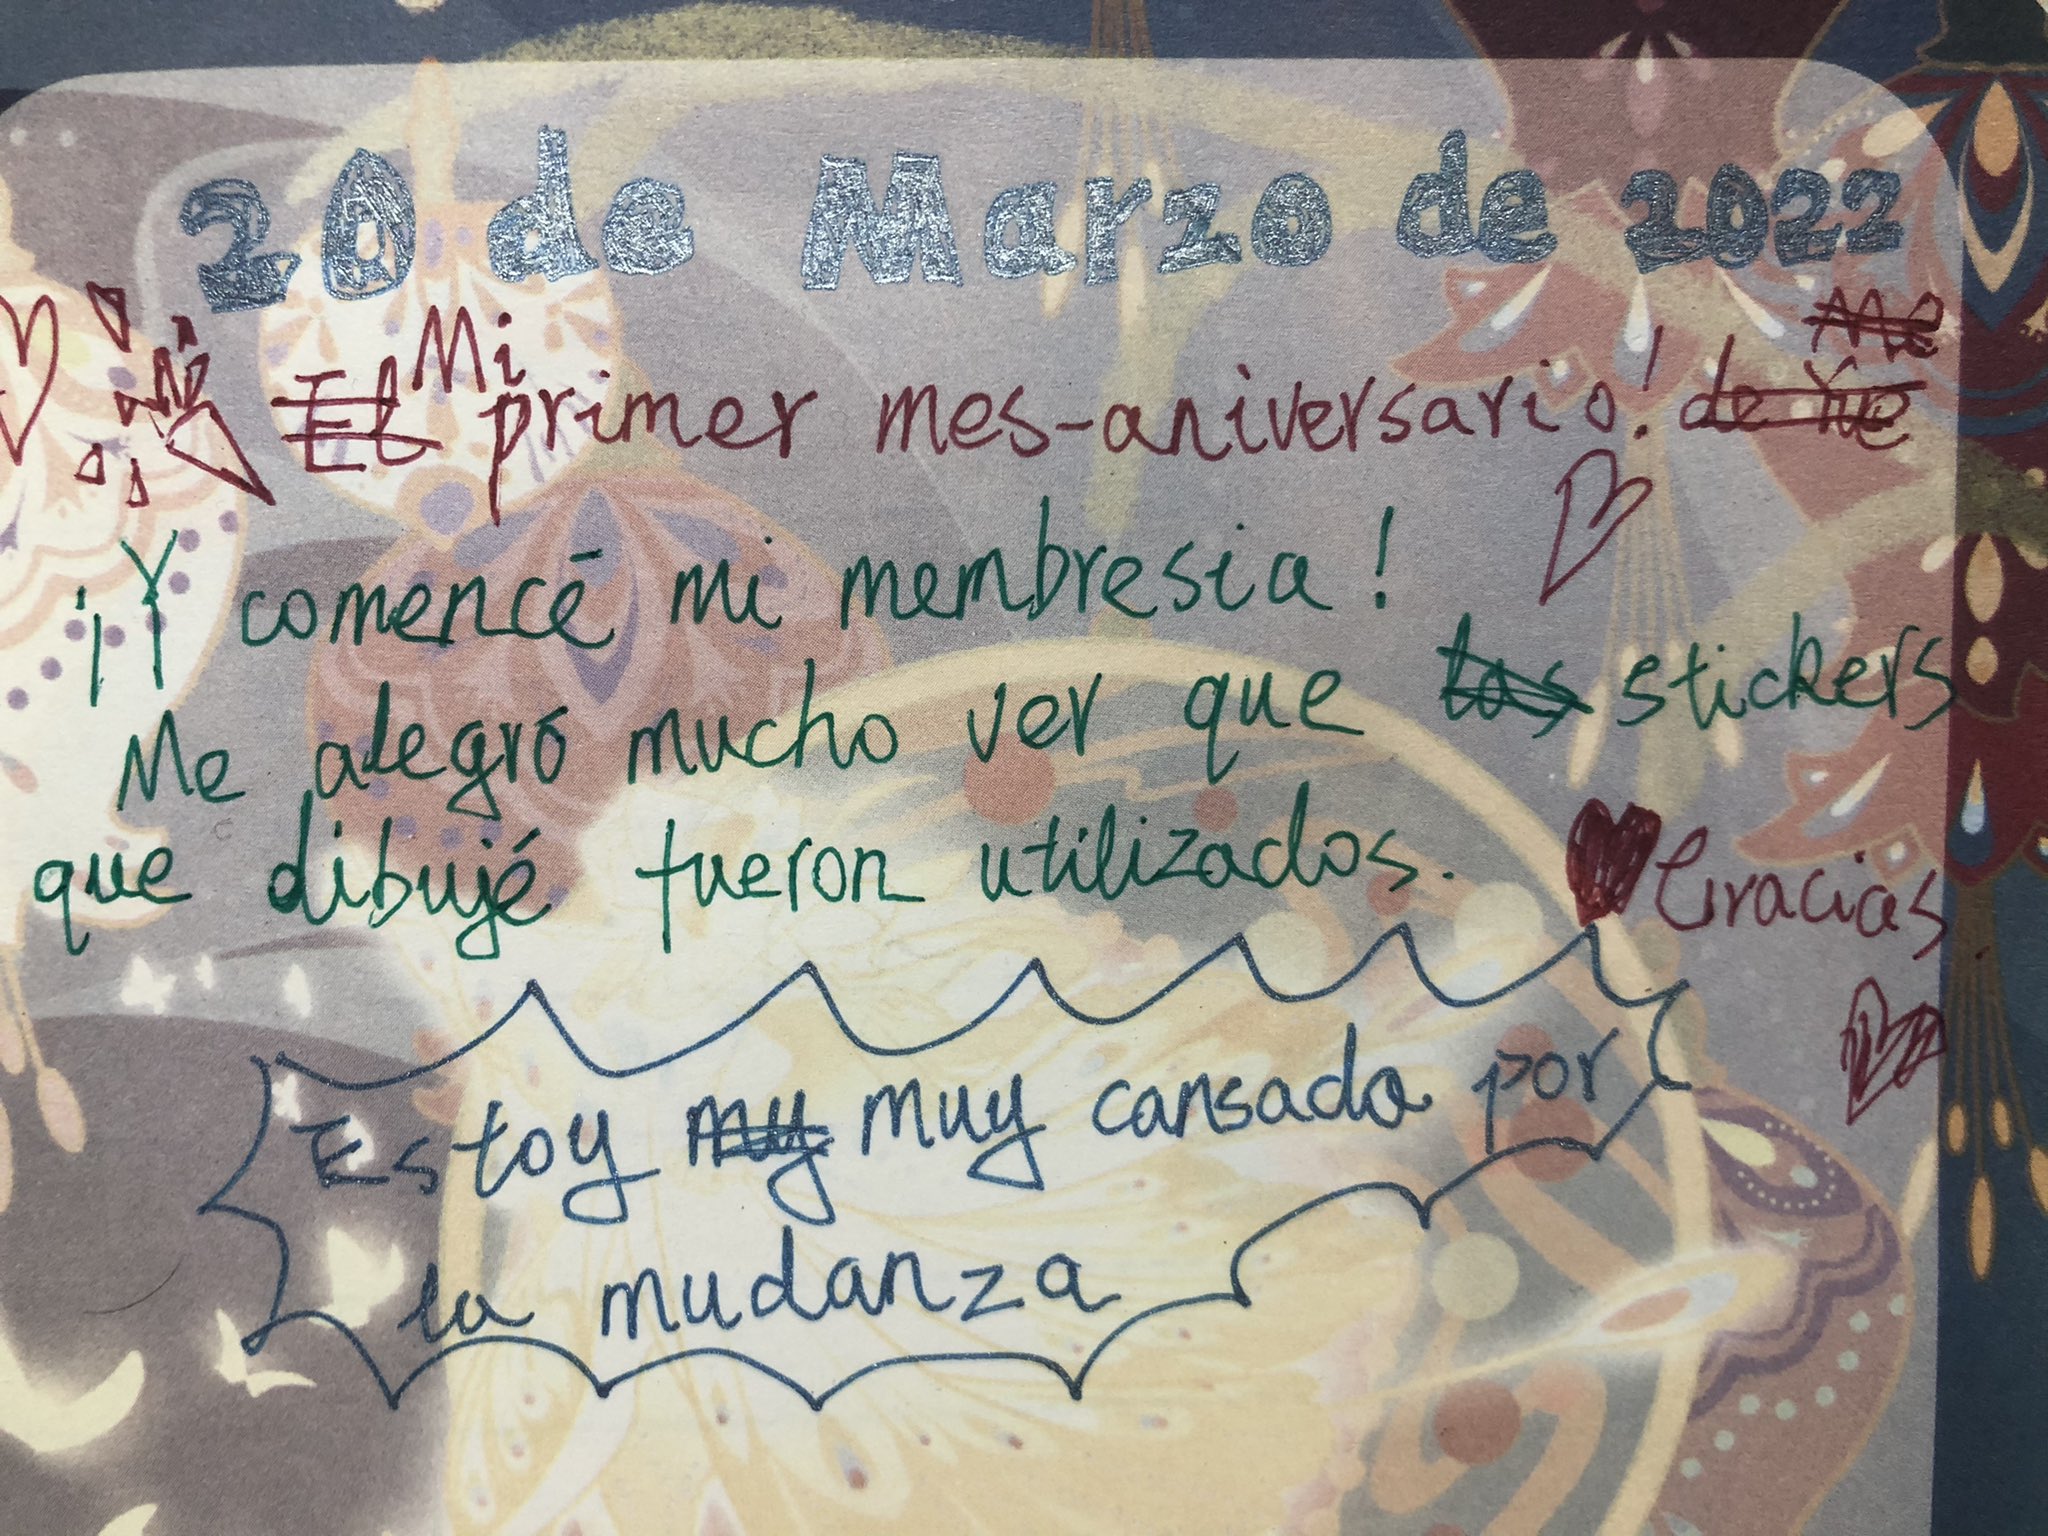 20 de Marzo de 2022
Mi primer mes-aniversario!
¡Y comencé mi membresia!
Me alegró mucho ver que stickers
que dibujé fueron utilizados.
Gracias.
Estoy muy cansada por
la mudanza